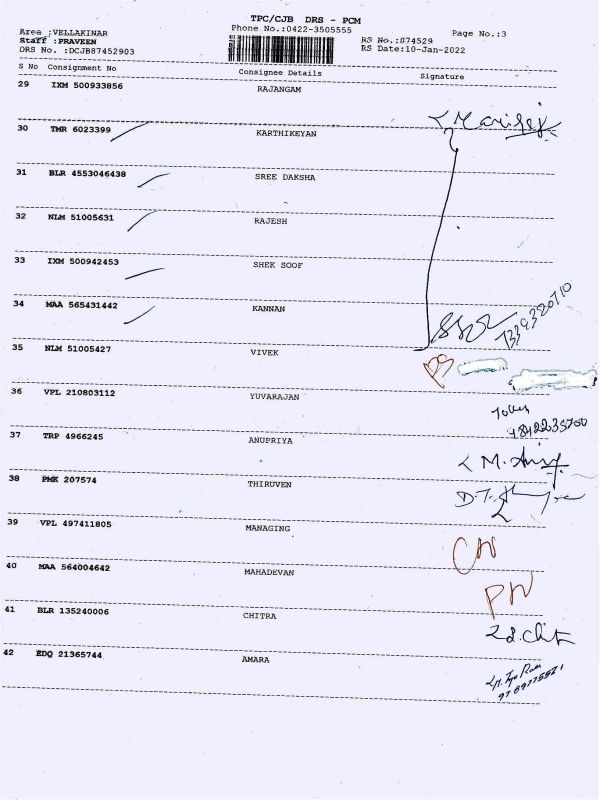 TPC/CJB DRS - PCM
Area :VELLAKINAR Phone No.:0422-3505555 Page No.:3
Staff :PRAVEEN RS No.:874529
DRS No. :DCJB87452903 RS Date:10-Jan-2022
S No Consignment No Consignee Details Signature
29 IXM 500933856 RAJANGAM
30 TMR 6023399 KARTHIKEYAN
31 BLR 4553046438 SREE DAKSHA
32 NLM 51005631 RAJESH
33 IXM 500942453 SHEK SOOF
34 MAA 565431442 KANNAN
35 NLM 51005427 VIVEK
36 VPL 210803112 YUVARAJAN
37 TRP 4966245 ANUPRIYA
38 PMK 207574 THIRUVEN
39 VPL 497411805 MANAGING
CN
40 MAA 564004642 MAHADEVAN
PN
41 BLR 135240006 CHITRA
42 EDQ 21365744 AMARA